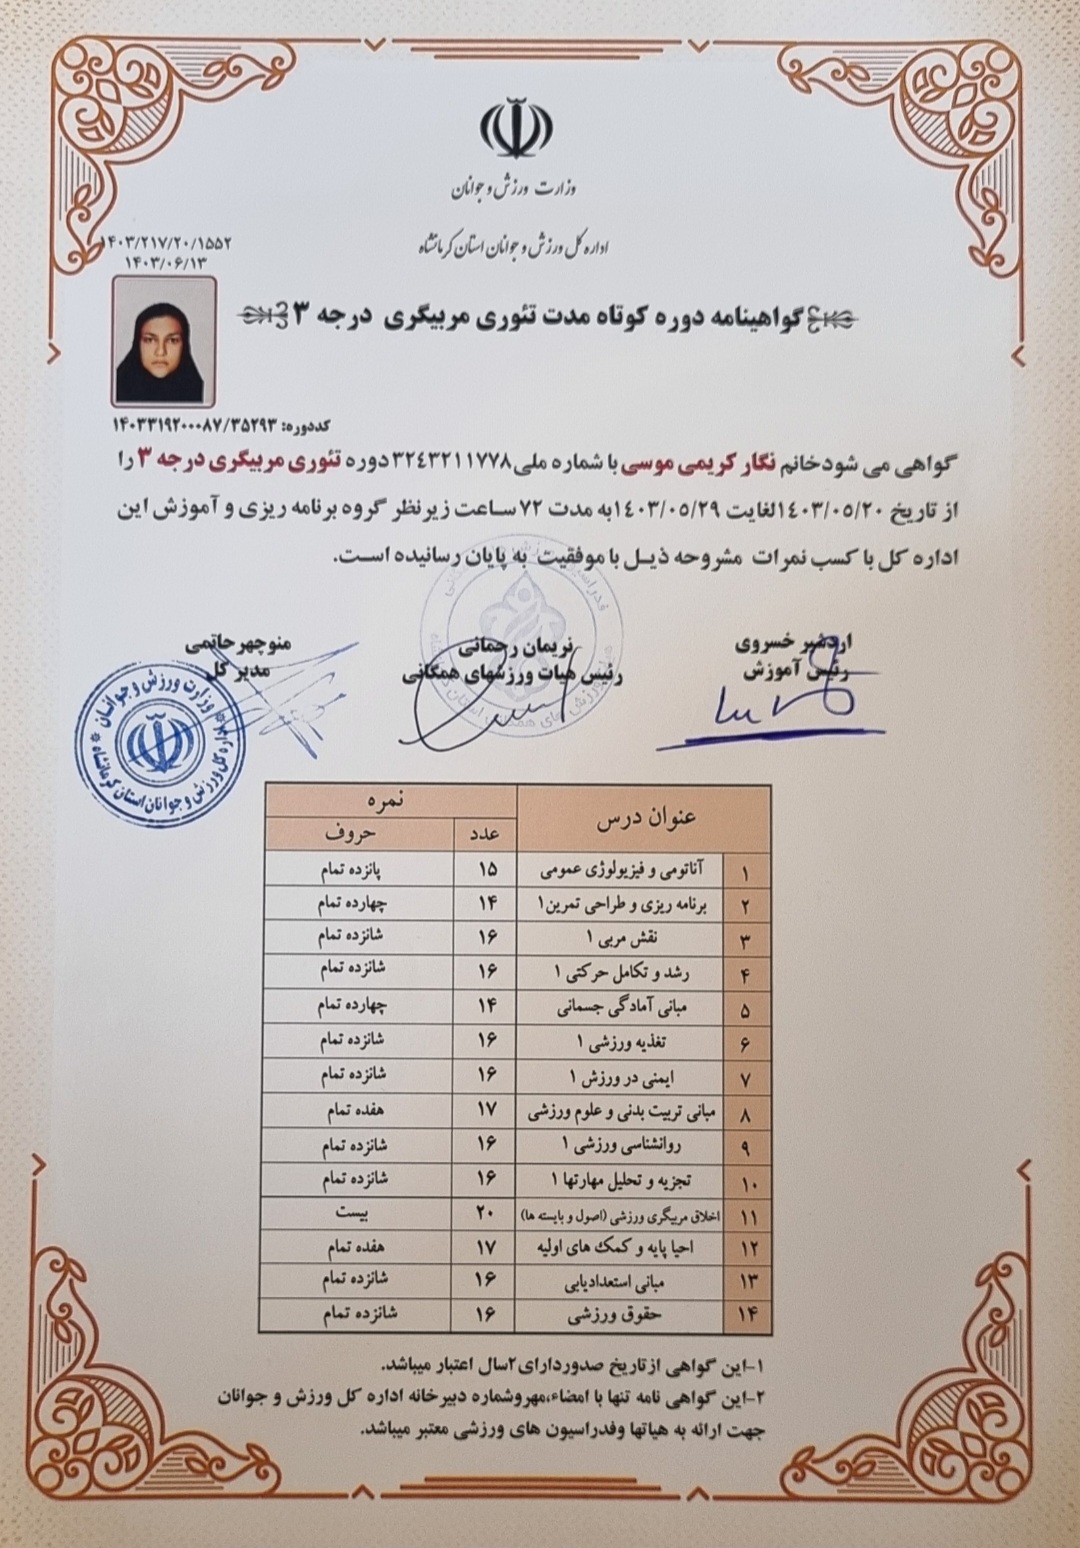 وزارت ورزش و جوانان
اداره کل ورزش و جوانان استان کرمانشاه
۱۴۰۳/۲۱۷/۲۰/۱۵۵۲
۱۴۰۳/۰۶/۱۳
گواهینامه دوره کوتاه مدت تئوری مربیگری درجه ۳
کددوره: ۱۴۰۳۳۱۹۲۰۰۰۸۷/۳۵۲۹۳
گواهی می شودخانم نگار کریمی موسی با شماره ملی ۳۲٤۳۲۱۱۷۷۸ دوره تئوری مربیگری درجه ۳ را
از تاریخ ۱٤۰۳/۰۵/۲۰لغایت ۱٤۰۳/۰۵/۲۹به مدت ۷۲ ساعت زیرنظر گروه برنامه ریزی و آموزش این
اداره کل با کسب نمرات مشروحه ذیل با موفقیت به پایان رسانیده است.
اردشیر خسروی
رئیس آموزش
نریمان رحمانی
رئیس هیات ورزشهای همگانی
منوچهر حاتمی
مدیر کل
وزارت ورزش و جوانان
اداره کل ورزش و جوانان استان کرمانشاه
عنوان درس نمره
عدد حروف
۱ آناتومی و فیزیولوژی عمومی ۱۵ پانزده تمام
۲ برنامه ریزی و طراحی تمرین۱ ۱۴ چهارده تمام
۳ نقش مربی ۱ ۱۶ شانزده تمام
۴ رشد و تکامل حرکتی ۱ ۱۶ شانزده تمام
۵ مبانی آمادگی جسمانی ۱۴ چهارده تمام
۶ تغذیه ورزشی ۱ ۱۶ شانزده تمام
۷ ایمنی در ورزش ۱ ۱۶ شانزده تمام
۸ مبانی تربیت بدنی و علوم ورزشی ۱۷ هفده تمام
۹ روانشناسی ورزشی ۱ ۱۶ شانزده تمام
۱۰ تجزیه و تحلیل مهارتها ۱ ۱۶ شانزده تمام
۱۱ اخلاق مربیگری ورزشی (اصول و بایسته ها) ۲۰ بیست
۱۲ احیا پایه و کمک های اولیه ۱۷ هفده تمام
۱۳ مبانی استعدادیابی ۱۶ شانزده تمام
۱۴ حقوق ورزشی ۱۶ شانزده تمام
۱-این گواهی ازتاریخ صدوردارای۲سال اعتبار میباشد.
۲-این گواهی نامه تنها با امضاء،مهروشماره دبیرخانه اداره کل ورزش و جوانان
جهت ارائه به هیاتها وفدراسیون های ورزشی معتبر میباشد.